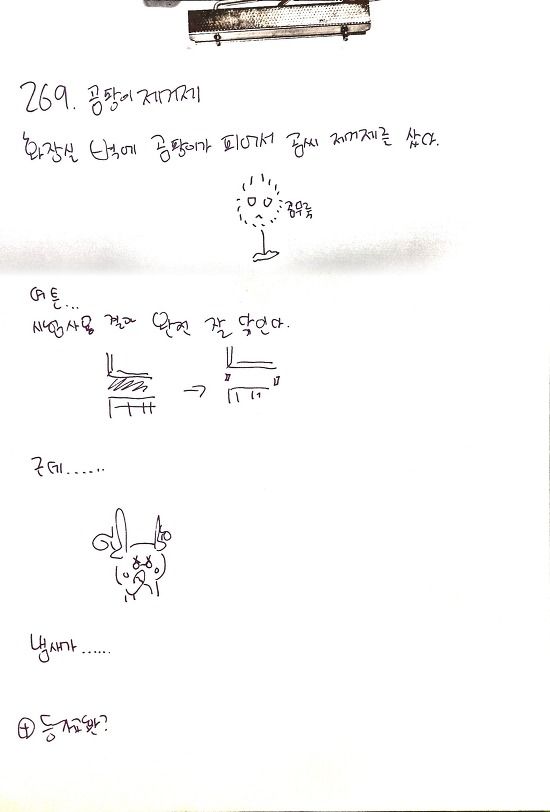 269. 곰팡이 제거제
화장실 벽에 곰팡이가 피어서 곰씨 제거제를 샀다.
곰무룩
여튼...
시험사용 결과 완전 잘 닦인다.
근데......
냄새가......
⊕ 등장교환?